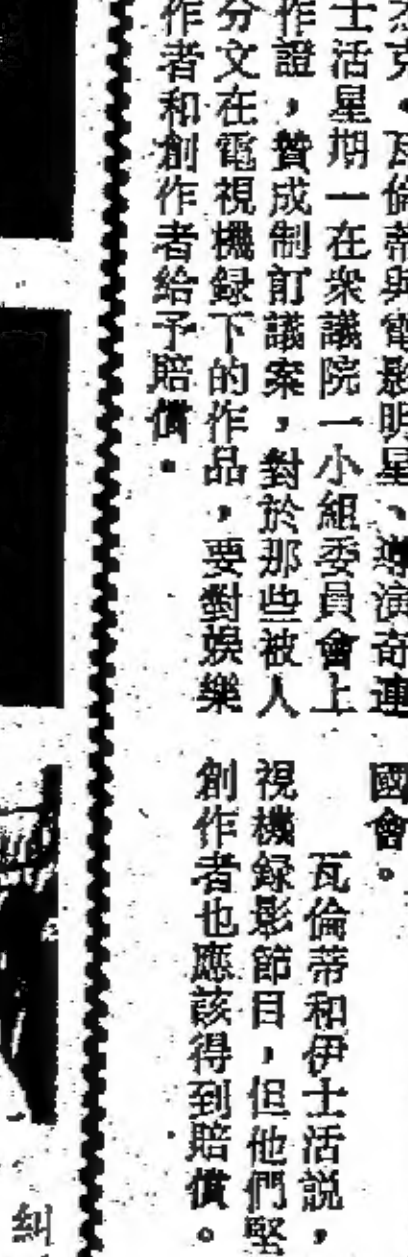 杰克·瓦倫蒂與電影明星、導演奇連
士活星期一在衆議院一小組委員會上
作證，贊成制訂議案，對於那些被人
分文在電視機録下的作品，要對娛樂
作者和創作者給予賠償。
國會。
瓦倫蒂和伊士活説，
視機録影節目，但他們堅
創作者也應該得到賠償。
糾